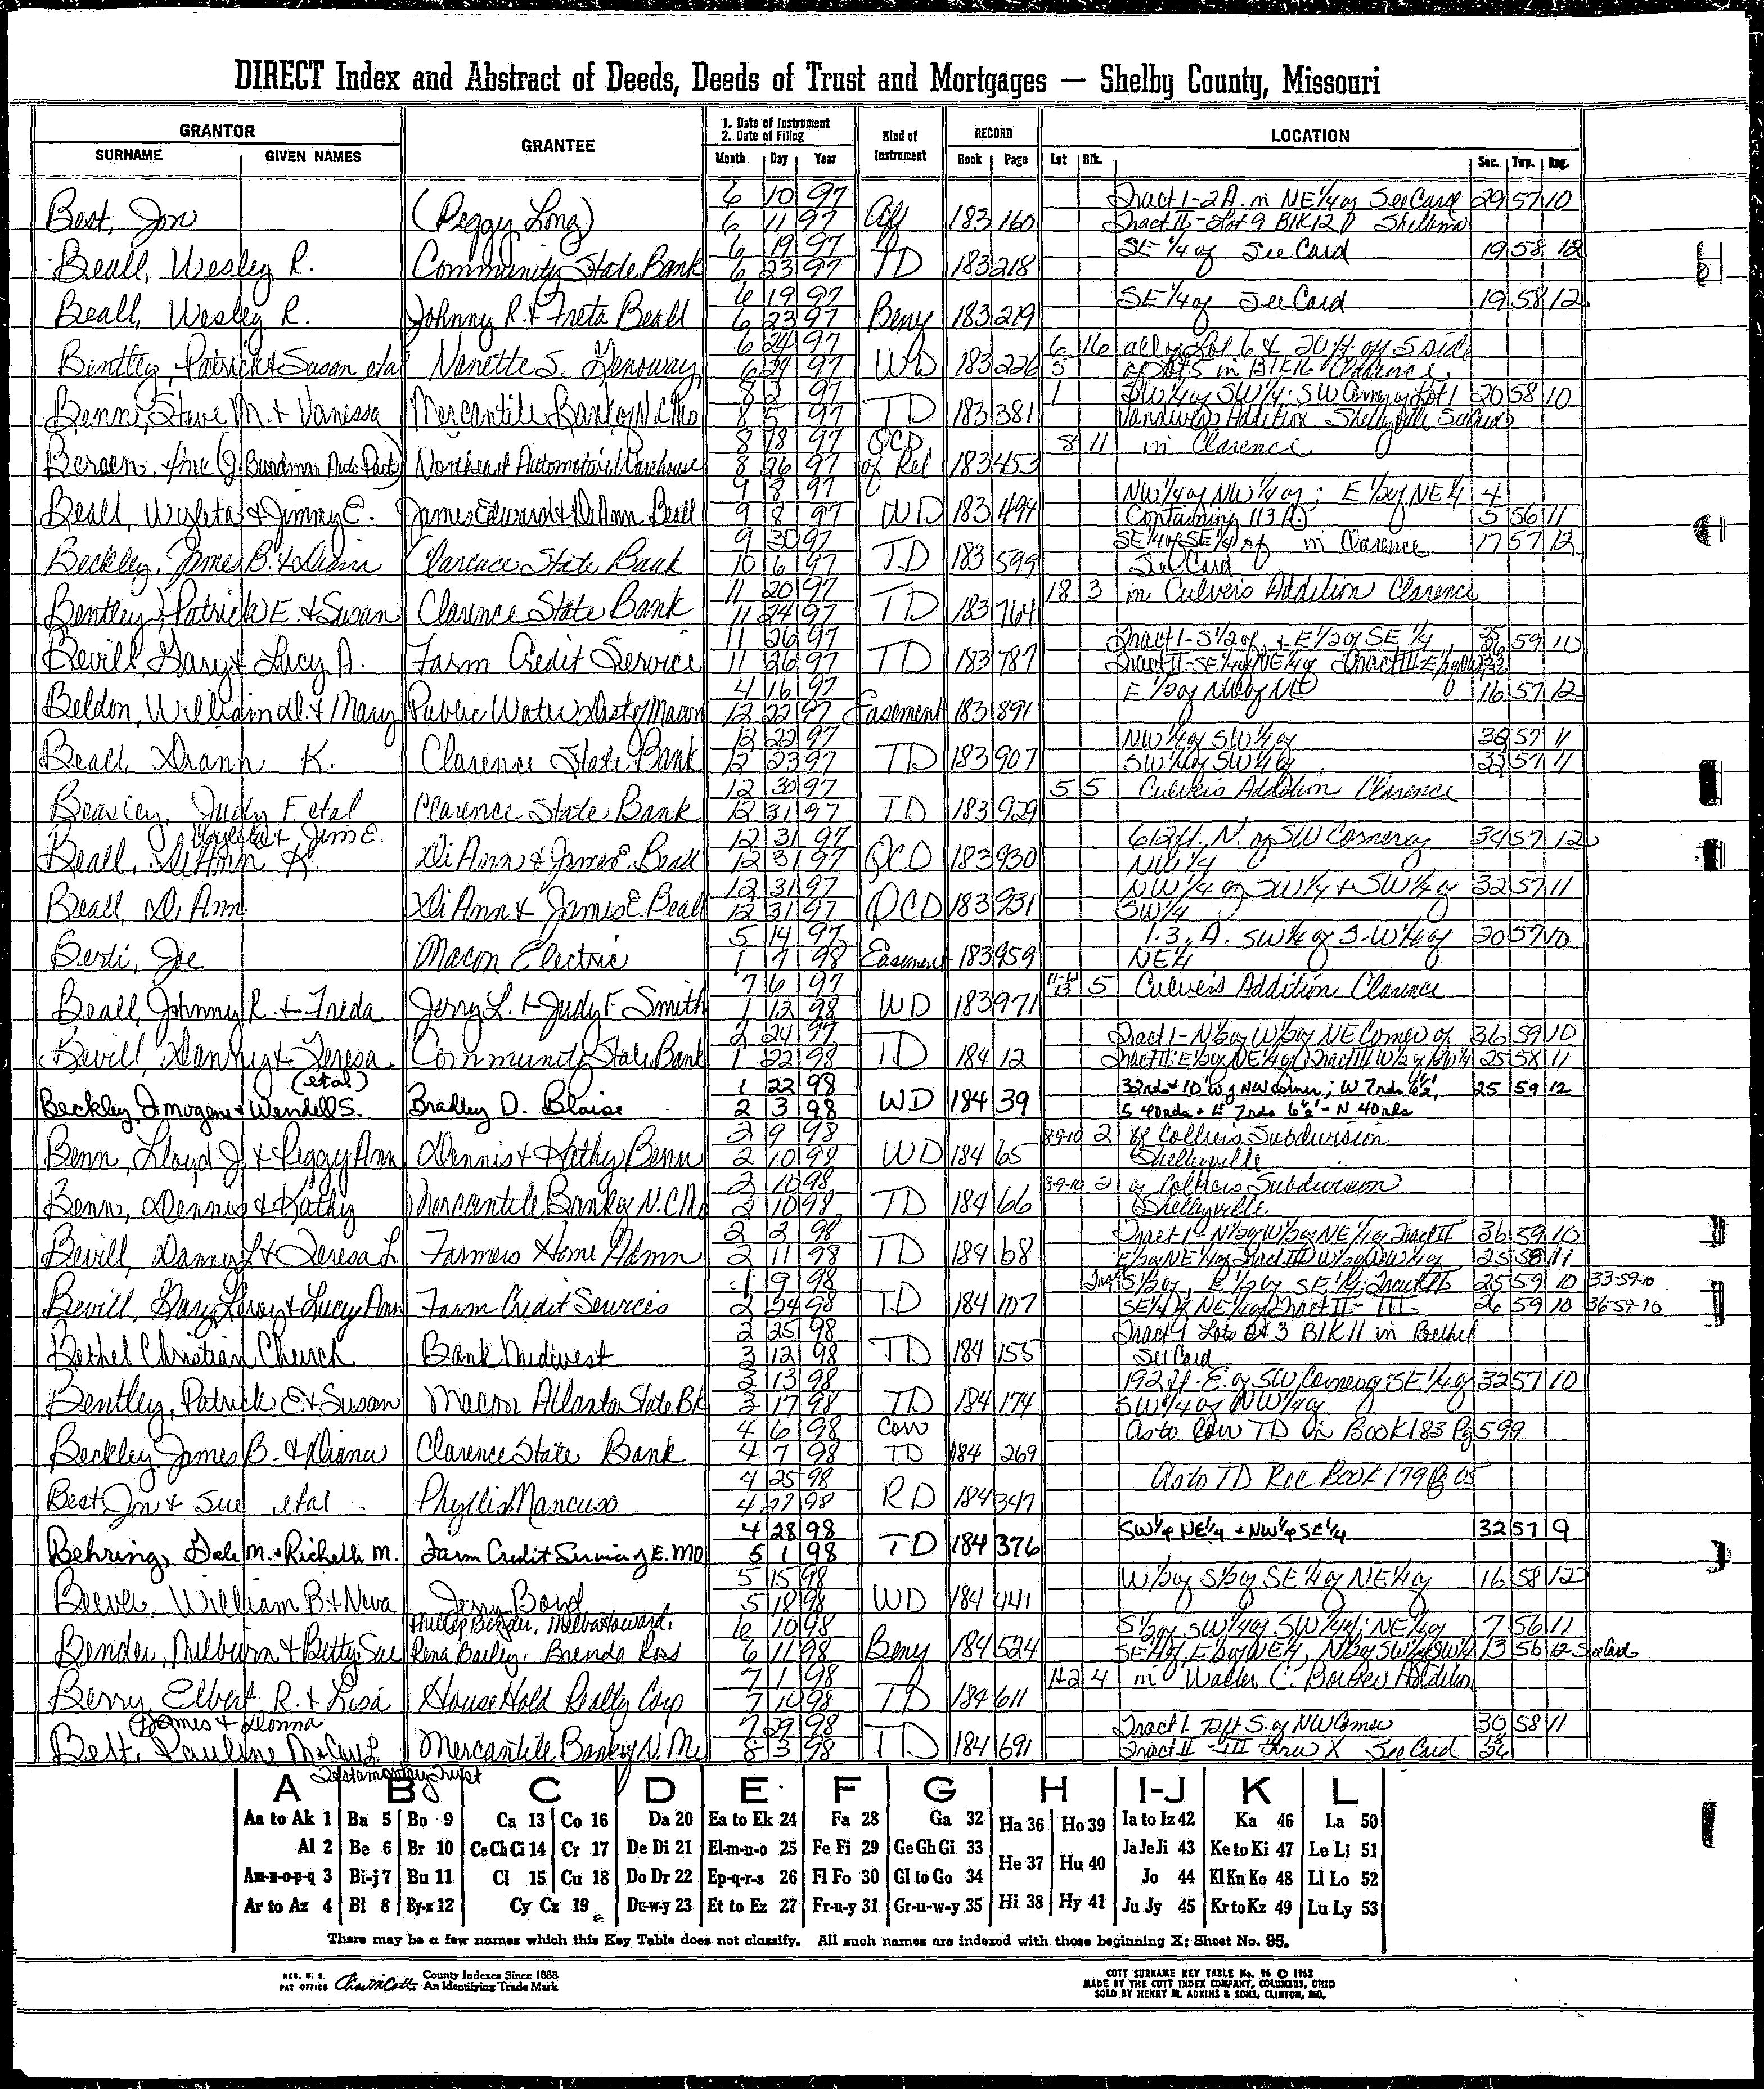 DIRECT Index and Abstract of Deeds, Deeds of Trust and Mortgages — Shelby County, Missouri
GRANTOR
SURNAME GIVEN NAMES
GRANTEE
1. Date of Instrument
2. Date of Filing
Month Day Year
Kind of Instrument
RECORD
Book Page
LOCATION
Lot Blk. Sec. Twp. Rng.
6 10 97 Tract 1-2A. in NE 1/4 of See Card 29 57 10
Best, Jon (Peggy Long) 6 11 97 Aff 183 160 Tract II - Lot 9 Blk 12
6 19 97 SE 1/4 of See Card 19 58 12
Beall, Wesley R. Community State Bank 6 23 97 TD 183 218
6 19 97 SE 1/4 of See Card 19 58 12
Beall, Wesley R. Johnny R. & Freta Beall 6 23 97 Beny 183 219
6 24 97 6 16 all of Lot 6 & 20 ft of S Side
Bentley, Patrick & Susan etal Nanette S. Genoway 6 24 97 WD 183 226 5 of Lot 5 in Blk 16 Clarence
8 2 97 1 SW 1/4 of SW 1/4; SW Corner of Lot 1 20 58 10
Benn, Steve M. & Vanessa Mercantile Bank of N.C. Mo 8 5 97 TD 183 381 Addition Shelbyville See Card
8 18 97 QCD 8 11 in Clarence
Inc (Burdman Auto Parts) Northeast Automotive Warehouse 8 26 97 of Rel 183 453
9 8 97 NW 1/4 of NW 1/4 of; E 1/2 of NE 1/4 4
Beall, Wyleta & Jimmy E. James Edward & DiAnn Beall 9 8 97 WD 183 494 Containing 113 A. 5 56 11
9 30 97 SE 1/4 of SE 1/4 of in Clarence 17 57 12
Beckley, James B. & Diana Clarence State Bank 10 6 97 TD 183 599 See Card
11 20 97 18 3 in Culvers Addition Clarence
Bentley, Patrick E. & Susan Clarence State Bank 11 24 97 TD 183 764
11 26 97 Tract 1 - S 1/2 of, & E 1/2 of SE 1/4 59 10
Bevill Gary & Lucy A. Farm Credit Service 11 26 97 TD 183 787 Tract II - SE 1/4 of NE 1/4 of Tract III E 1/2 of
4 16 97 E 1/2 of NW of NE 16 57 12
Beldon, William D. & Mary Public Water Dist of Macon 12 22 97 Easement 183 891
12 22 97 NW 1/4 of SW 1/4 of 57 11
Beall, Diann K. Clarence State Bank 12 23 97 TD 183 907 SW 1/4 of SW 1/4 of 57 11
12 30 97 5 5 Culvers Addition Clarence
Beasley, Judy F. etal Clarence State Bank 12 31 97 TD 183 929
Wyleta & Jim E. 12 31 97 612 ft. N. of SW Corner of 34 57 12
Beall, DiAnn K. DiAnn & James E. Beall 12 31 97 QCD 183 930 NW 1/4
12 31 97 NW 1/4 of SW 1/4 & SW 1/4 of 32 57 11
Beall, DiAnn DiAnn & James E. Beall 12 31 97 QCD 183 931 SW 1/4
5 14 97 1.3, A. SW 1/4 of S.W 1/4 of 20 57 10
Berti, Joe Macon Electric 1 7 98 Easement 183 959 NE 1/4
7 6 97 5 Culvers Addition Clarence
Beall, Johnny R. & Freda Jerry L. & Judy F. Smith 1 12 98 WD 183 971
2 24 97 Tract 1 - N 1/2 of W 1/2 of NE Corner of 36 59 10
Bevill, Danny & Teresa Community State Bank 1 22 98 TD 184 12 Tract II: E 1/2 of NE 1/4 of Tract III W 1/2 of NW 1/4 25 58 11
(etal) 1 22 98 32rds + 10' W of NW corner; W 7rds 6 1/2', 25 59 12
Beckley, Imogene & Wendell S. Bradley D. Blaise 2 3 98 WD 184 39 S 40rds + E 7rds 6 1/2' - N 40rds
2 9 98 8-9-10 2 of Colliers Subdivision
Benn, Lloyd J. & Peggy Ann Dennis & Kathy Benn 2 10 98 WD 184 65 Shelbyville
2 10 98 8-9-10 2 of Colliers Subdivision
Benn, Dennis & Kathy Mercantile Bank of N.C. Mo 2 10 98 TD 184 66 Shelbyville
2 2 98 Tract 1 - N 1/2 of W 1/2 of NE 1/4 of Tract II 36 59 10
Bevill, Danny L & Teresa L Farmers Home Admn 2 11 98 TD 184 68 E 1/2 of NE 1/4 of Tract III W 1/2 of NW 1/4 of 25 58 11
1 9 98 S 1/2 of, E 1/2 of SE 1/4; Tract II 25 59 10 33-59-10
Bevill, Gary Leroy & Lucy Ann Farm Credit Services 2 24 98 TD 184 107 SE 1/4 of NE 1/4 of Tract II - III 26 59 10 36-59-10
2 25 98 Tract 1 Lots 3 Blk 11 in Bethel
Bethel Christian Church Bank Midwest 3 12 98 TD 184 155 See Card
3 13 98 192 ft. E. of SW Corner of SE 1/4 of 32 57 10
Bentley, Patrick E. & Susan Macon Atlanta State Bk 3 17 98 TD 184 174 SW 1/4 of NW 1/4 of
4 6 98 Corr As to Corr TD in Book 183 Pg 599
Beckley James B. & Diana Clarence State Bank 4 7 98 TD 184 269
4 25 98 As to TD Rec Book 179 Pg 05
Best Jon & Sue etal Phyllis Mancuso 4 27 98 RD 184 347
4 28 98 SW 1/4 NE 1/4 + NW 1/4 SE 1/4 32 57 9
Behring, Dale M. & Richelle M. Farm Credit Service of E. MO 5 1 98 TD 184 376
5 15 98 W 1/2 of S 1/2 of SE 1/4 of NE 1/4 of 16 58 12
Beever, William B & Neva Jerry Bond 5 18 98 WD 184 441
Bender, Melba Howard, 6 10 98 S 1/2 of SW 1/4 of SW 1/4; NE 1/4 of 7 56 11
Bender, Milburn & Betty Sue Rena Bailey, Brenda Ross 6 11 98 Beny 184 524 SE 1/4 of E 1/2 of NE 1/4, N 1/2 of SW 1/4 SW 1/4 13 56 12 See Card
7 1 98 1+2 4 in Walter C. Barber Addition
Berry, Elbert R. & Lisa House Hold Realty Corp 7 10 98 TD 184 611
James & Donna 7 29 98 Tract 1. 72 ft S. of NW Corner 30 58 11
Belt, Pauline McCary L. Mercantile Bank of N. Mo 8 3 98 TD 184 691 Tract II - III thru X See Card
Testamentary Trust
A B C D E F G H I-J K L
Aa to Ak 1 Ba 5 Bo 9 Ca 13 Co 16 Da 20 Ea to Ek 24 Fa 28 Ga 32 Ha 36 Ho 39 Ia to Iz 42 Ka 46 La 50
Al 2 Be 6 Br 10 Ce Ch Ci 14 Cr 17 De Di 21 El-m-n-o 25 Fe Fi 29 Ge Gh Gi 33 He 37 Hu 40 Ja Je Ji 43 Ke to Ki 47 Le Li 51
Am-n-o-p-q 3 Bi-j 7 Bu 11 Cl 15 Cu 18 Do Dr 22 Ep-q-r-s 26 Fl Fo 30 Gl to Go 34 Jo 44 Kl Kn Ko 48 Ll Lo 52
Ar to Az 4 Bl 8 By-z 12 Cy Cz 19 Du-w-y 23 Et to Ez 27 Fr-u-y 31 Gr-u-w-y 35 Hi 38 Hy 41 Ju Jy 45 Kr to Kz 49 Lu Ly 53
There may be a few names which this Key Table does not classify. All such names are indexed with those beginning X; Sheet No. 95.
REG. U. S. PAT OFFICE County Indexes Since 1888 An Identifying Trade Mark
COTT SURNAME KEY TABLE No. 96 © 1962
MADE BY THE COTT INDEX COMPANY, COLUMBUS, OHIO
SOLD BY HENRY M. ADKINS & SONS, CLINTON, MO.